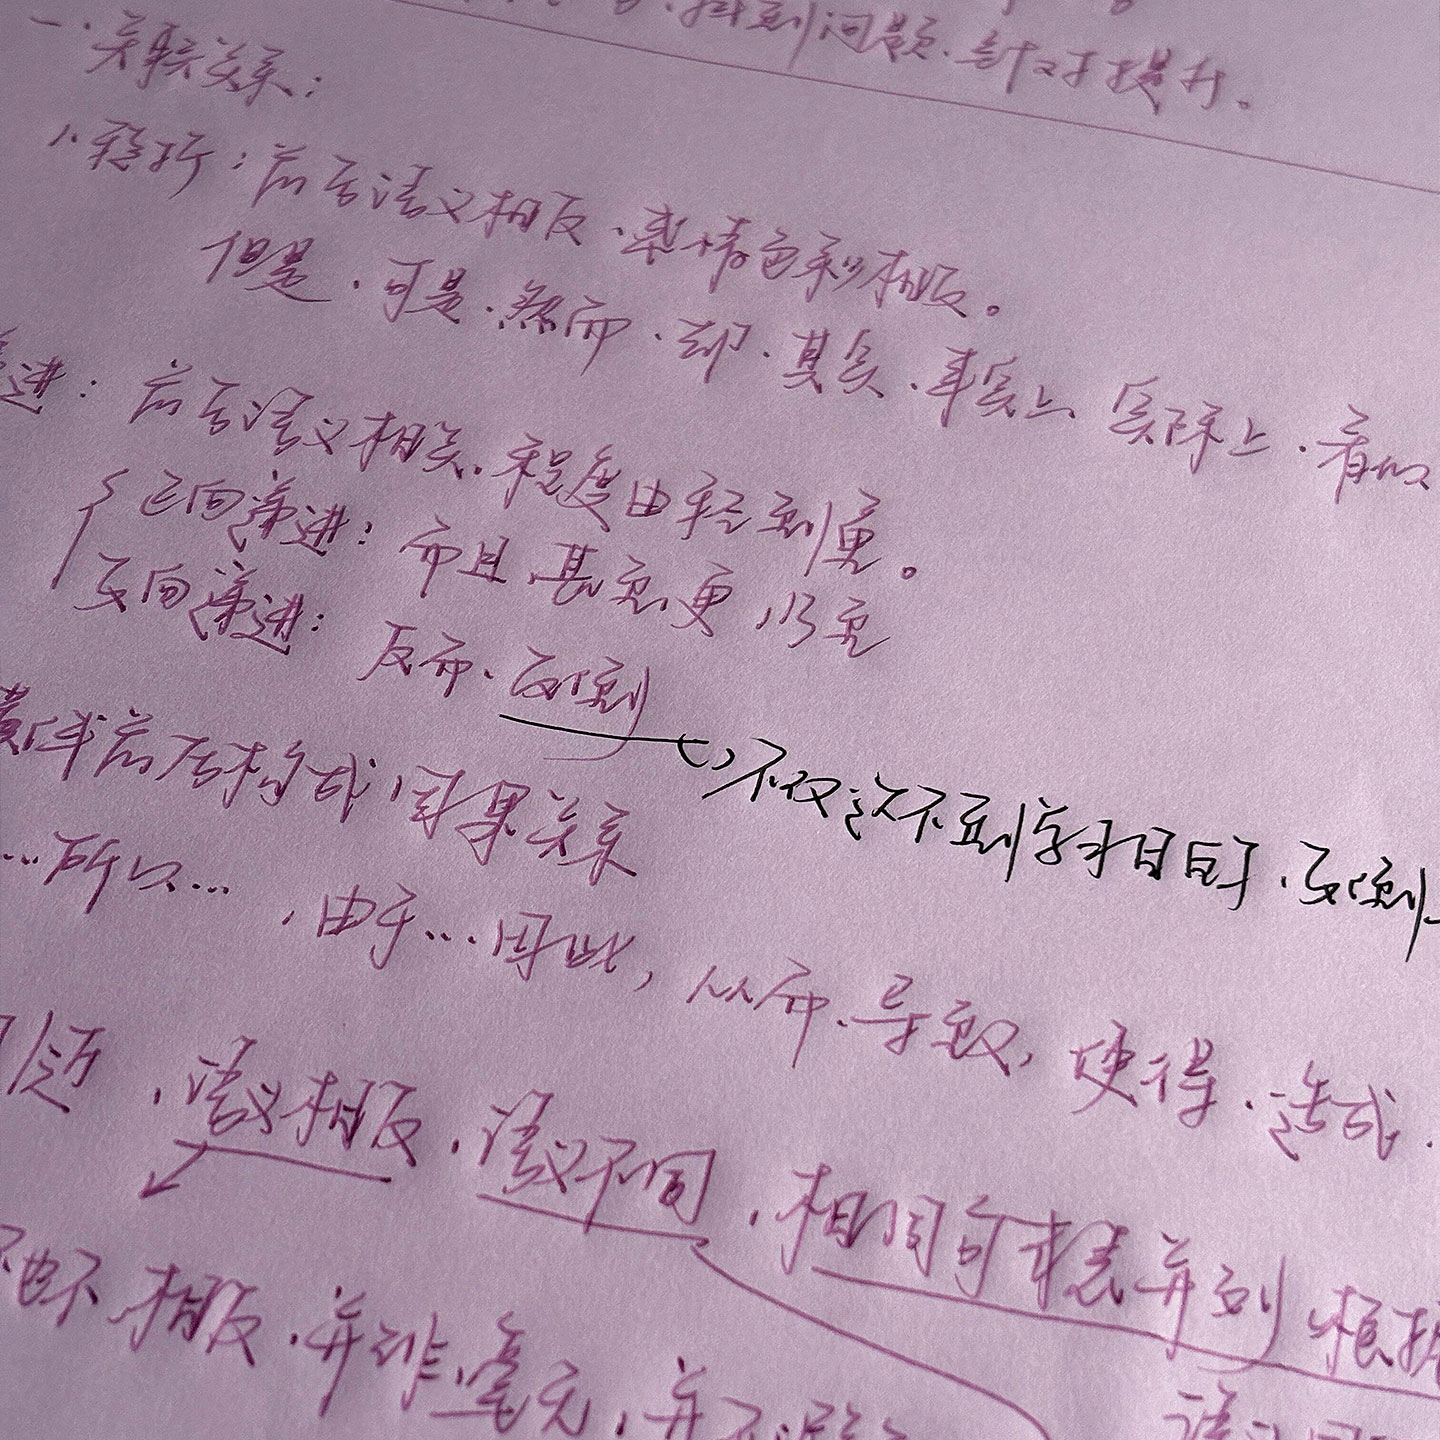 找到问题.针对提升。
一.关联关系:
1.转折:前后语义相反.感情色彩相反。
但是.可是.然而.却.其实.事实上 实际上.看似
进:前后语义相关.程度由轻到重。
正向递进:而且 甚至 更,乃至
反向递进:反而、反倒
不仅达不到学习目的.反倒
前后构成因果关系
…所以….由于…因此,从而.导致,使得.造成.
.语义相反.语义不同.相同句式表并列 根据
相反.并非.毫无,并不